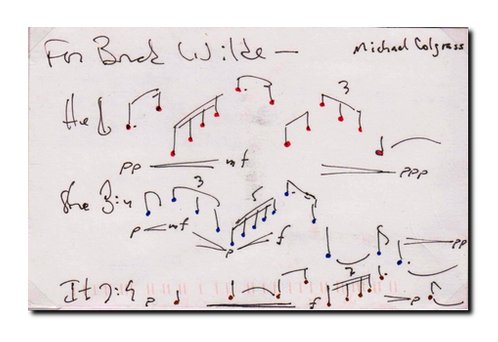 For Brad Wilde —
Michael Colgrass
3
He
pp mf ppp
She 3 5
p mf p f pp
It
p f p